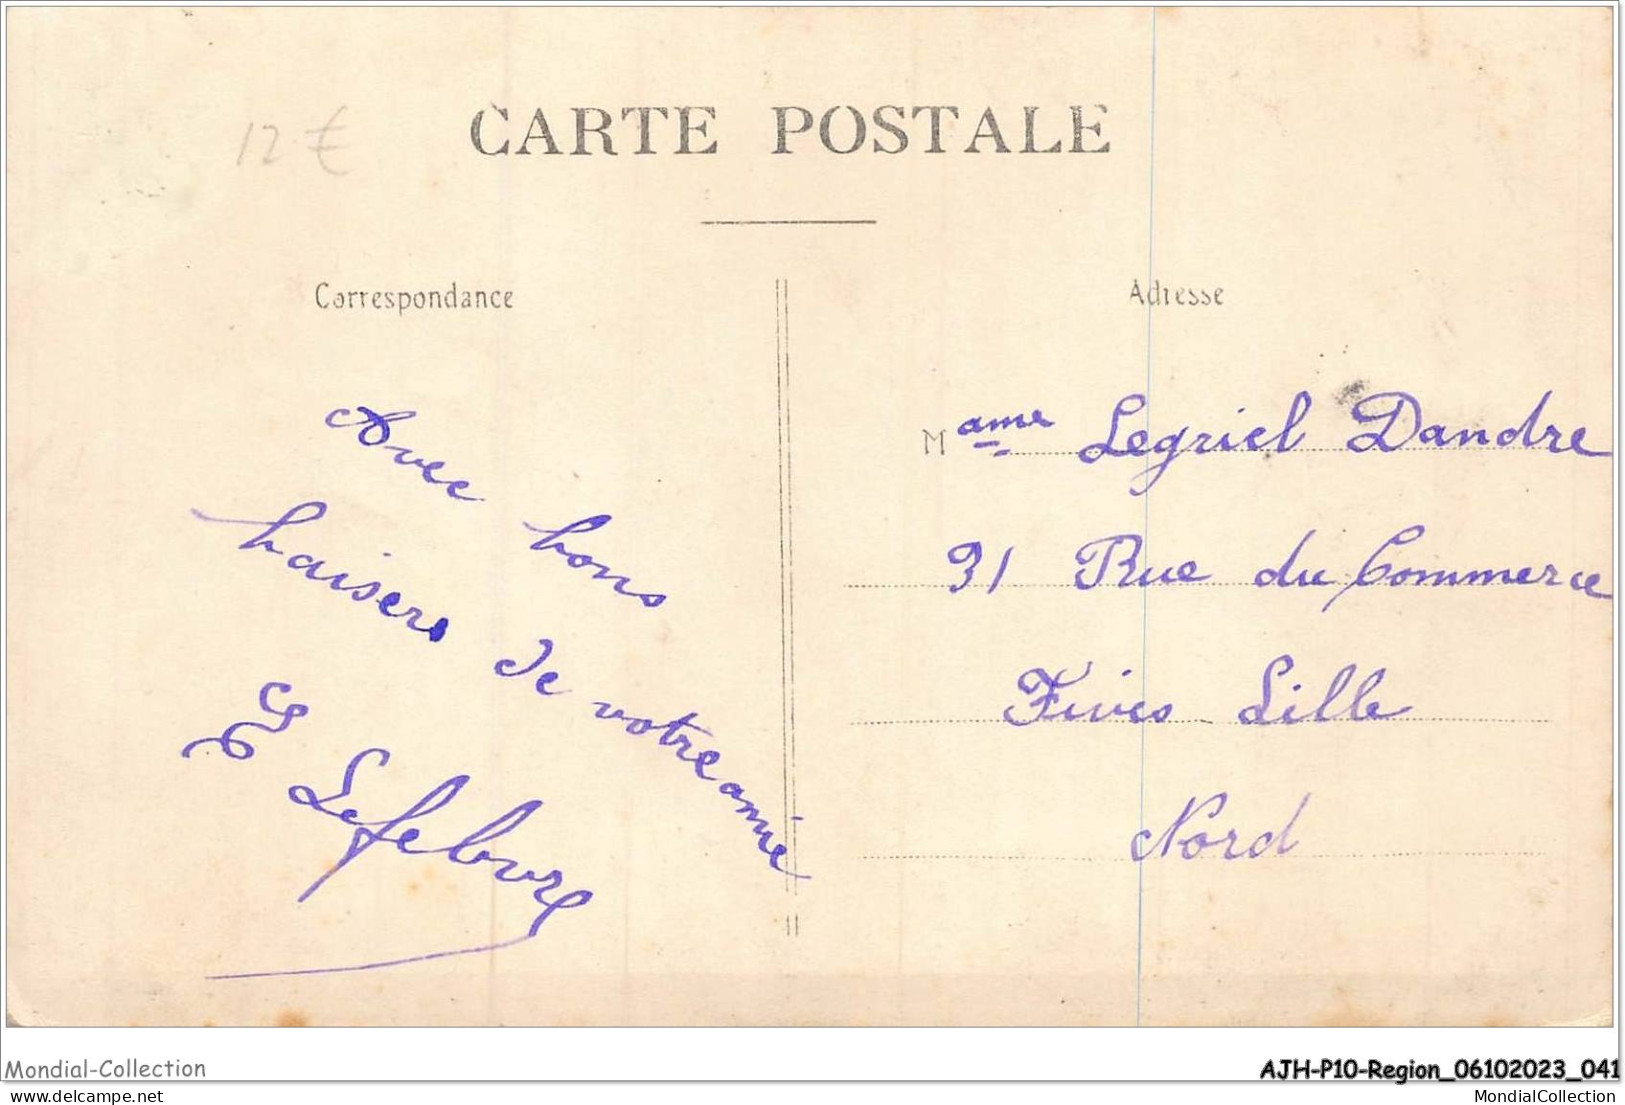 12 €
CARTE POSTALE
Correspondance
Adresse
Avec bons
baisers de votre amie
E Lefebvre
Mame Legriel Dandre
31 Rue du Commerce
Fives Lille
Nord
Mondial-Collection
AJH-P10-Region_06102023_041
delcampe.net
MondialCollection